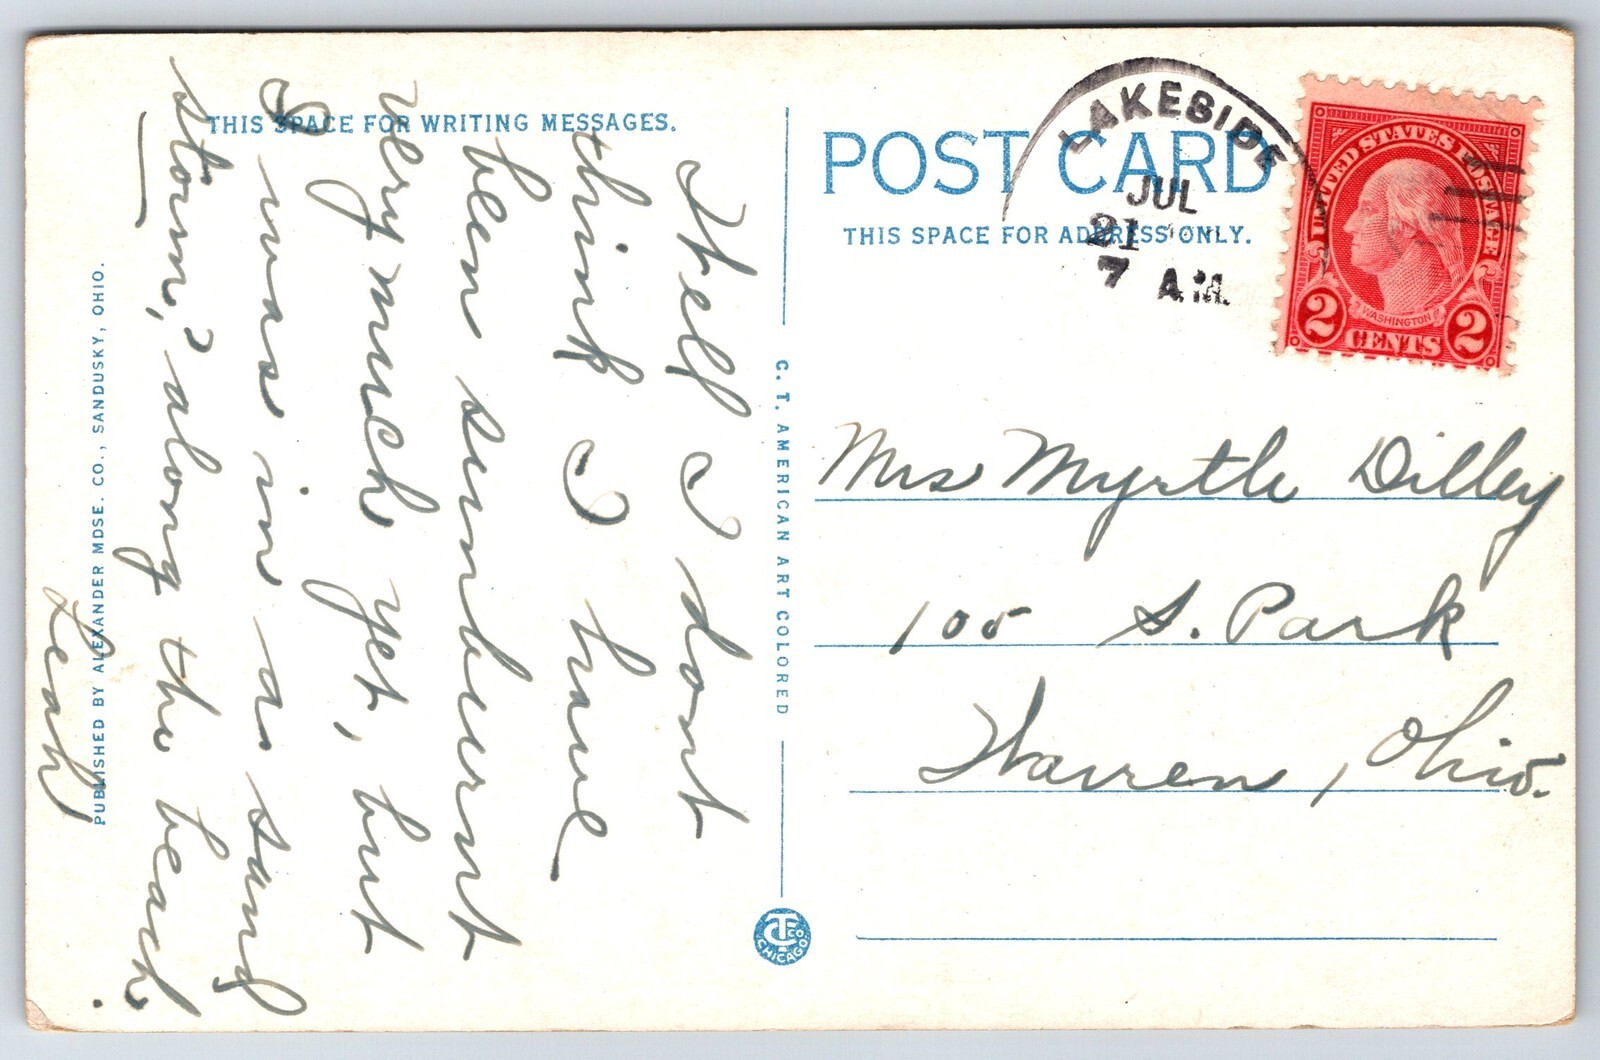 THIS SPACE FOR WRITING MESSAGES.
POST CARD
THIS SPACE FOR ADDRESS ONLY.
LAKESIDE
JUL
21
7 A.M.
UNITED STATES POSTAGE
WASHINGTON
2 CENTS 2
Well I dont
think I have
been sunburnt
very much yet, but
I was in a "sand
storm," along the beach.
Leah
Mrs Myrtle Dilley
105 S. Park
Warren, Ohio.
C. T. AMERICAN ART COLORED
CT CO
CHICAGO
PUBLISHED BY ALEXANDER MDSE. CO., SANDUSKY, OHIO.